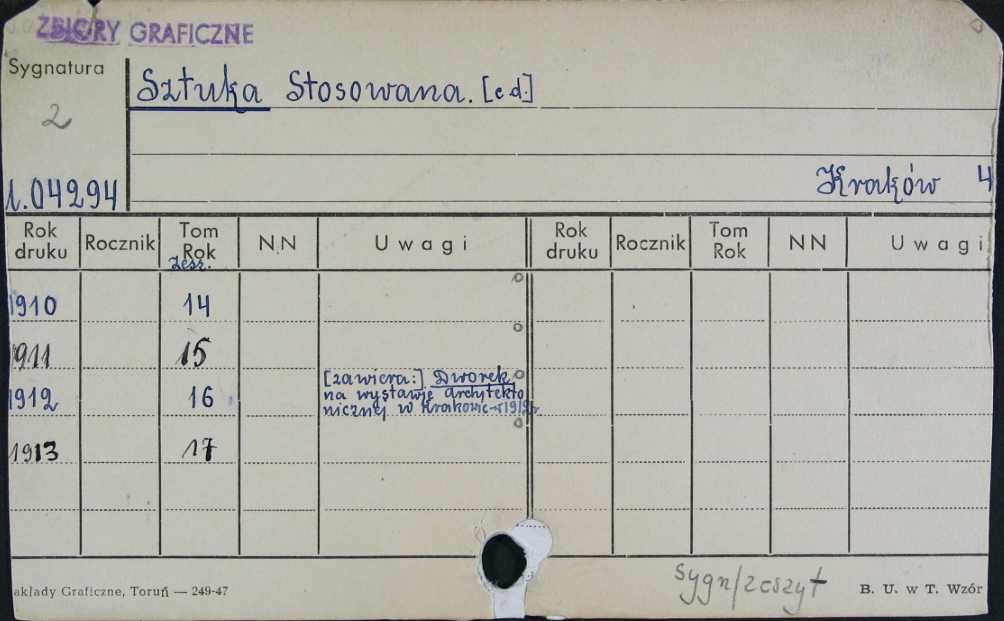 ZBIORY GRAFICZNE
Sygnatura
2
1.04294
Sztuka Stosowana. [c d.]
Kraków 4
Rok druku Rocznik Tom Rok zesz. NN Uwagi Rok druku Rocznik Tom Rok NN Uwagi
1910 14
1911 15
1912 16 [zawiera:] Dworek
na wystawie architekto
nicznej w Krakowie w 1912 r
1913 17
sygn/zeszyt
akłady Graficzne, Toruń — 249-47 B. U. w T. Wzór